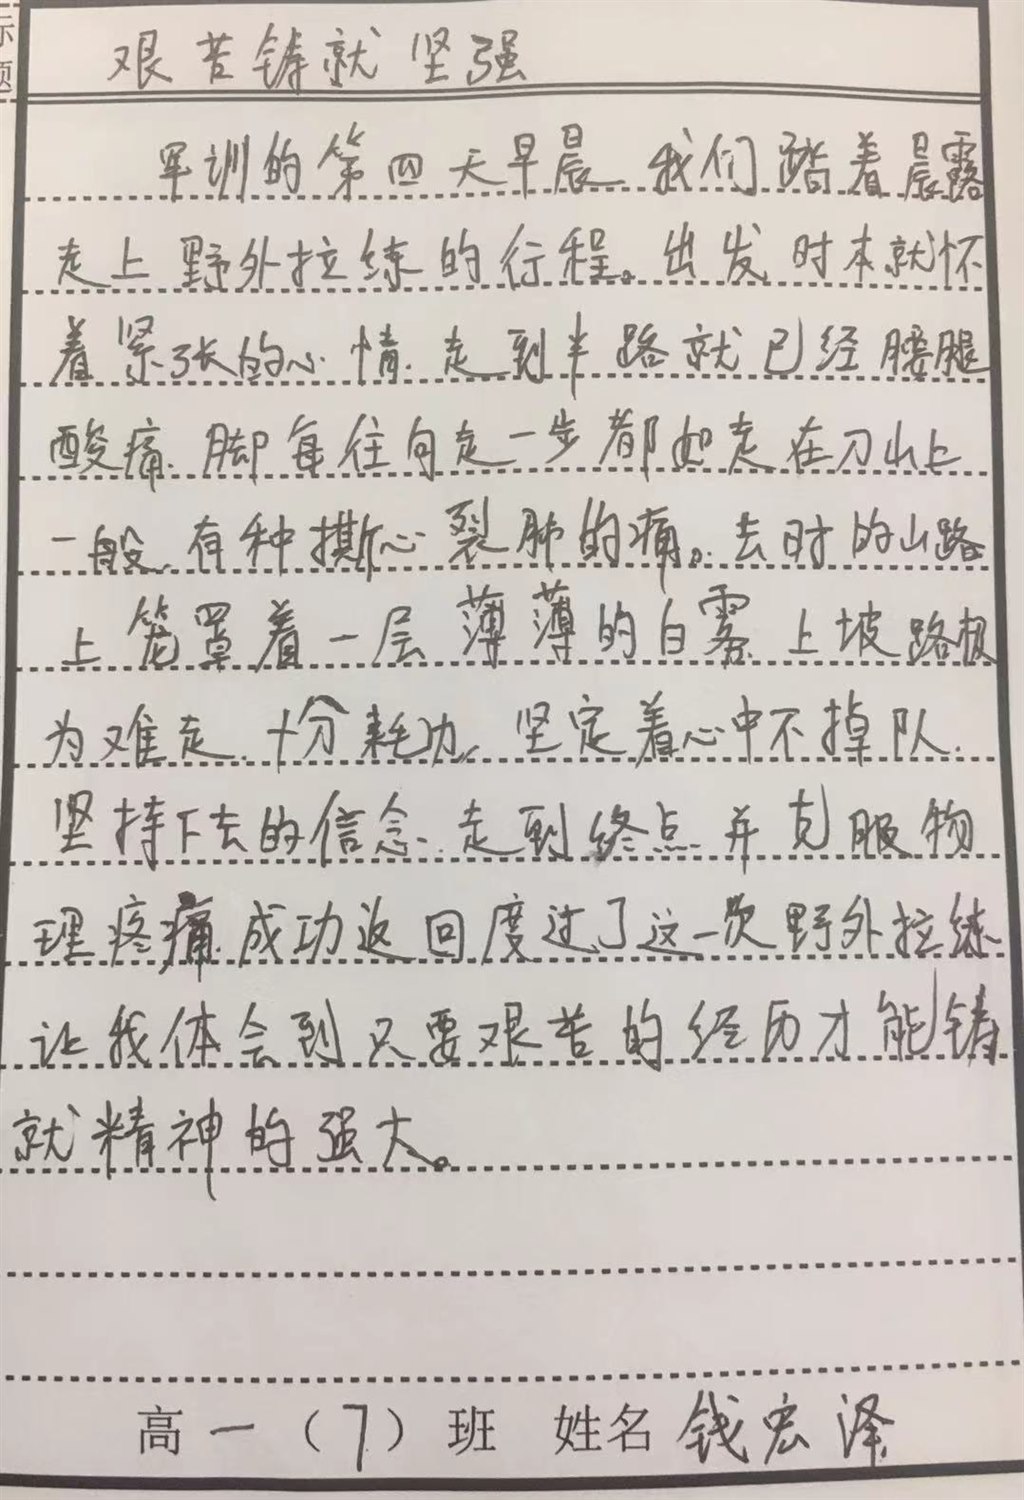 标题
艰苦铸就坚强
军训的第四天早晨 我们踏着晨露
走上野外拉练的行程。出发时本就怀
着紧张的心情.走到半路就已经腰腿
酸痛.脚每往向走一步都如走在刀山上
一般.有种撕心裂肺的痛。.去时的山路
上笼罩着一层薄薄的白雾.上坡路极
为难走.十分耗功.坚定着心中不掉队.
坚持下去的信念.走到终点.并克服物
理疼痛.成功返回度过了这一次野外拉练
让我体会到只要艰苦的经历才能铸
就精神的强大。
高一（7）班 姓名 钱宏泽